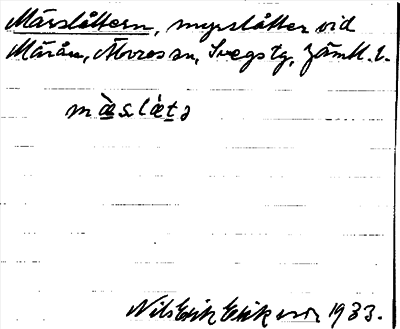 Mårslåttern, myrslåtter vid
Mårån, Älvros sn, Svegs tg, Jämtl. l.
mɑ̀s.lǻt ə
Nils Erik Eriksson 1933.